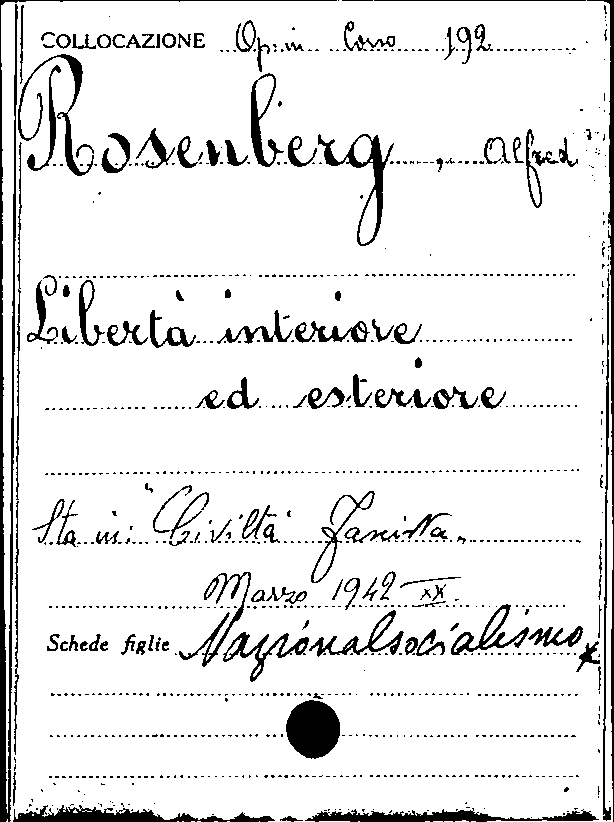 COLLOCAZIONE Op. in Corso 192
Rosenberg, Alfred
Libertà interiore
ed esteriore
Sta in: "Civiltà Fascista"
Marzo 1942 - XX.
Schede figlie Nazionalsocialismo *